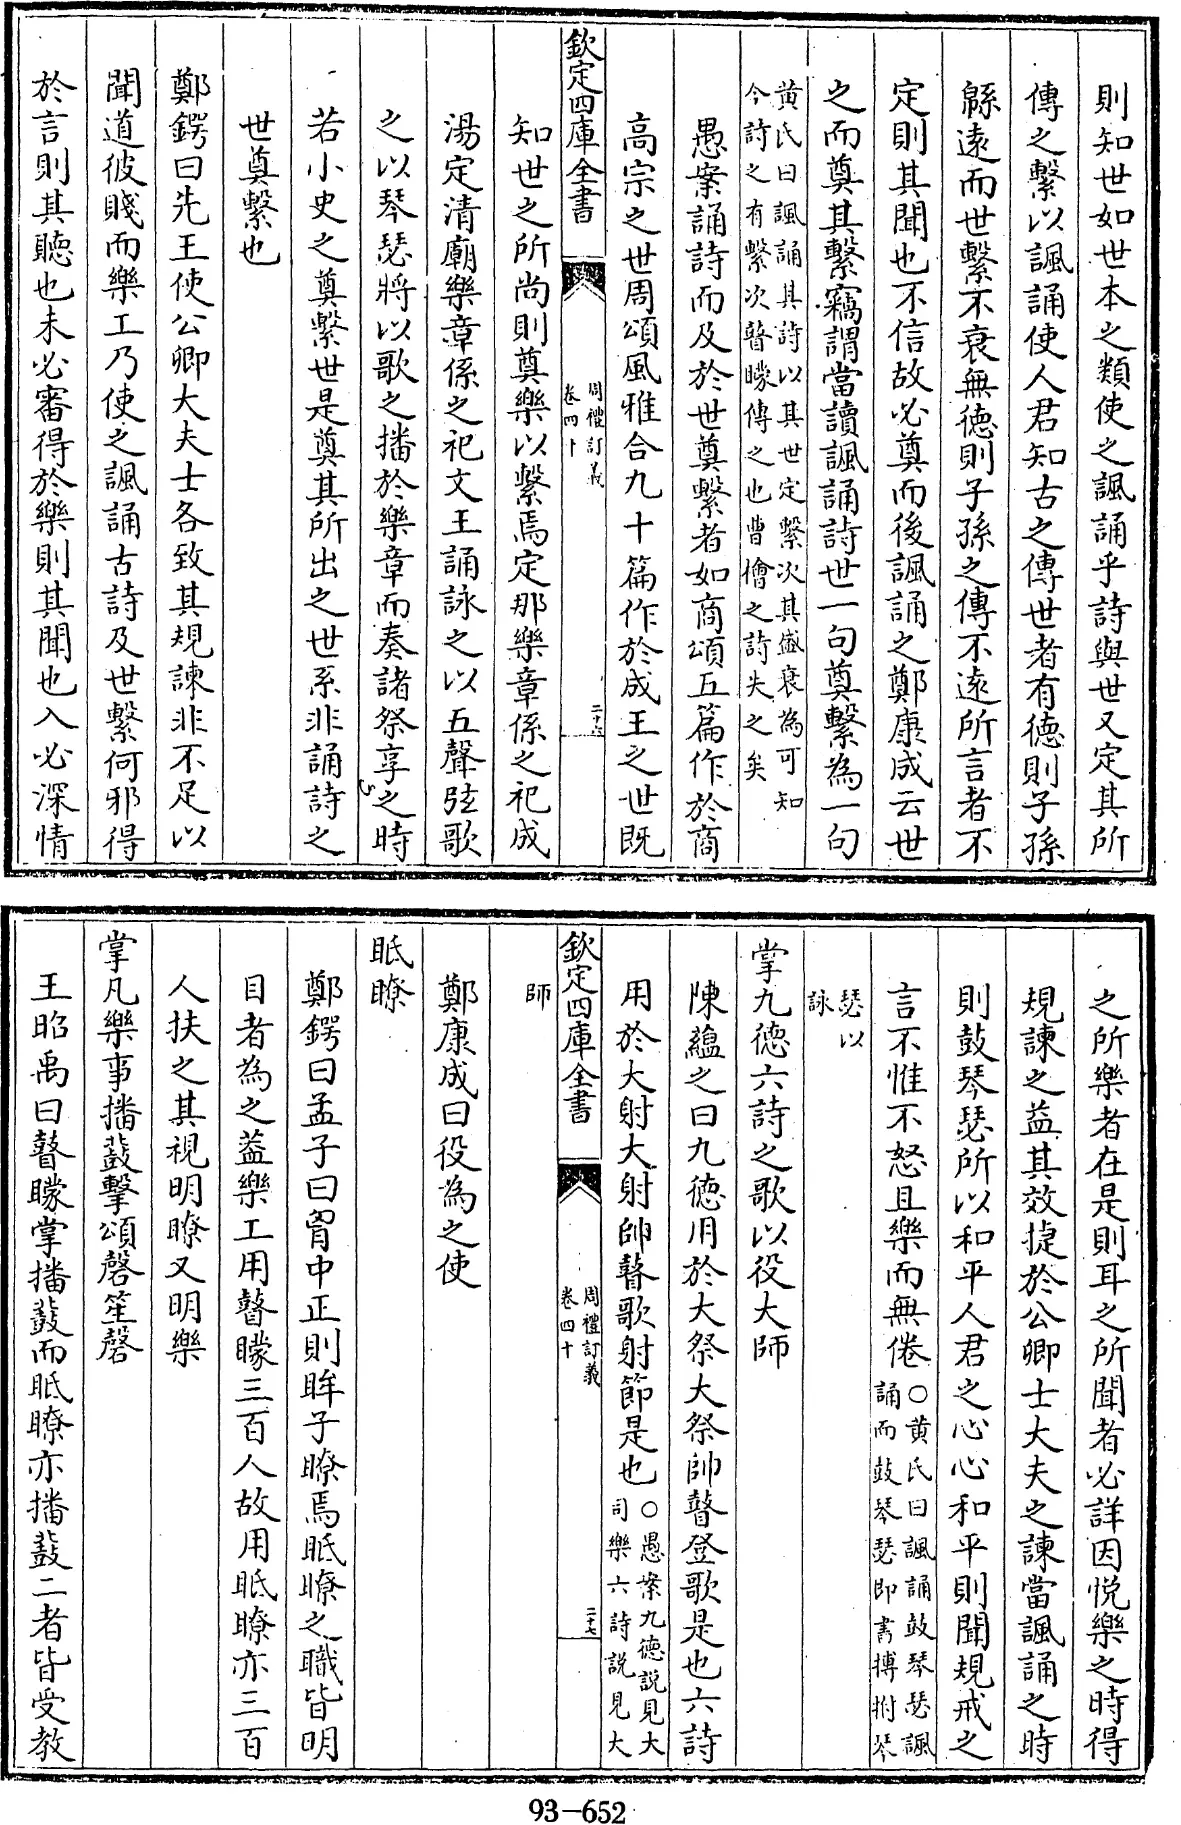 則知世如世本之類使之諷誦乎詩與世又定其所
傳之繫以諷誦使人君知古之傳世者有德則子孫
緜遠而世繫不衰無德則子孫之傳不遠所言者不
定則其聞也不信故必奠而後諷誦之鄭康成云世
之而奠其繫竊謂當讀諷誦詩世一句奠繫為一句
黄氏曰諷誦其詩以其世定繫次其盛衰為可知
今詩之有繫次瞽矇傳之也曹檜之詩失之矣
愚案誦詩而及於世奠繫者如商頌五篇作於商
高宗之世周頌風雅合九十篇作於成王之世既
欽定四庫全書
周禮訂義
卷四十
二十六
知世之所尚則奠樂以繫焉定那樂章係之祀成
湯定清廟樂章係之祀文王誦詠之以五聲弦歌
之以琴瑟將以歌之播於樂章而奏諸祭享之時
若小史之奠繫世是奠其所出之世系非誦詩之
世奠繫也
鄭鍔曰先王使公卿大夫士各致其規諫非不足以
聞道彼賤而樂工乃使之諷誦古詩及世繫何邪得
於言則其聽也未必審得於樂則其聞也入必深情
之所樂者在是則耳之所聞者必詳因悅樂之時得
規諫之益其效捷於公卿士大夫之諫當諷誦之時
則鼓琴瑟所以和平人君之心心和平則聞規戒之
言不惟不怒且樂而無倦○黄氏曰諷誦鼓琴瑟諷
誦而鼓琴瑟即書搏拊琴
瑟以
詠
掌九德六詩之歌以役大師
陳蘊之曰九德用於大祭大祭帥瞽登歌是也六詩
用於大射大射帥瞽歌射節是也○愚案九德說見大
司樂六詩說見大
欽定四庫全書
周禮訂義
卷四十
二十七
師
鄭康成曰役為之使
眡瞭
鄭鍔曰孟子曰胷中正則眸子瞭焉眡瞭之職皆明
目者為之葢樂工用瞽矇三百人故用眡瞭亦三百
人扶之其視明瞭又明樂
掌凡樂事播鼗擊頌磬笙磬
王昭禹曰瞽矇掌播鼗而眡瞭亦播鼗二者皆受教
93-652